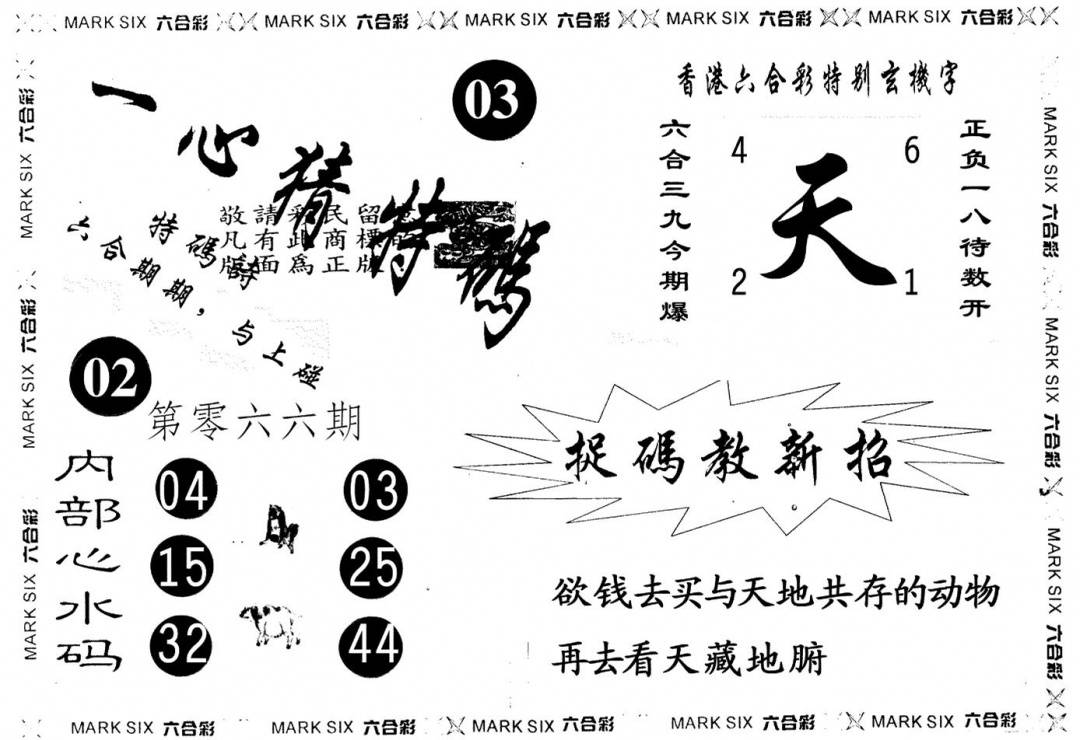 MARK SIX 六合彩 MARK SIX 六合彩 MARK SIX 六合彩 MARK SIX 六合彩 MARK SIX 六合彩
MARK SIX 六合彩
MARK SIX 六合彩
MARK SIX 六合彩
一心猜特碼
03
敬請彩民留意
凡有此商標的
版面為正版
特碼詩
六合期期，与上碰
02
第零六六期
内部心水码
04 03
15 25
32 44
香港六合彩特别玄機字
六合三九今期爆
4 6
天
2 1
正负一八待数开
捉碼教新招
欲钱去买与天地共存的动物
再去看天藏地腑
MARK SIX 六合彩
MARK SIX 六合彩
MARK SIX 六合彩
MARK SIX 六合彩 MARK SIX 六合彩 MARK SIX 六合彩 MARK SIX 六合彩 MARK SIX 六合彩